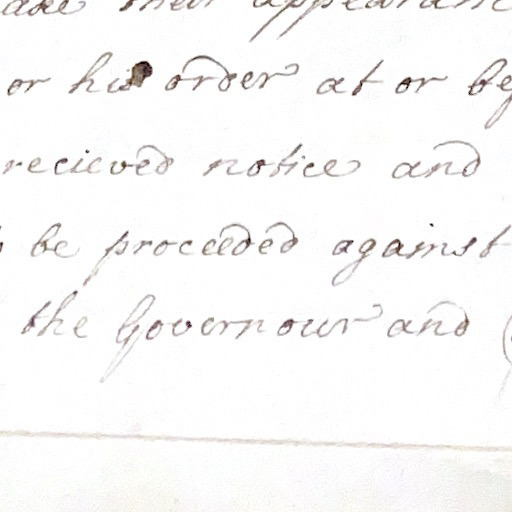 their appearanc
or his order at or be
recieved notice and
be proceeded against
the Governour and